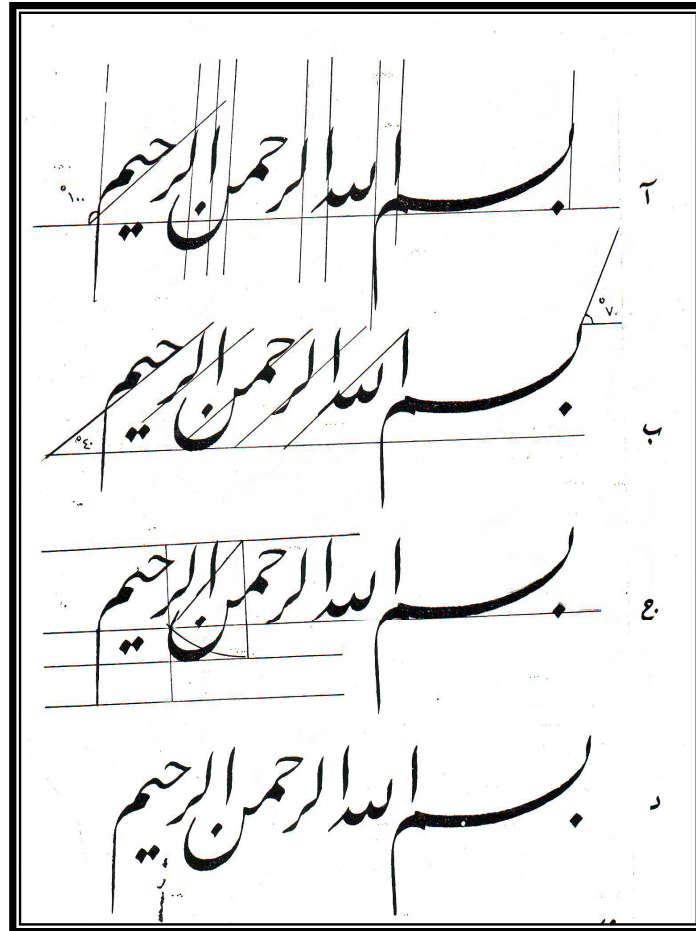 آ
بسم الله الرحمن الرحیم
°۱۰۰
°۷۰
بسم الله الرحمن الرحیم
ب
°۴۰
بسم الله الرحمن الرحیم
ج
بسم الله الرحمن الرحیم
د